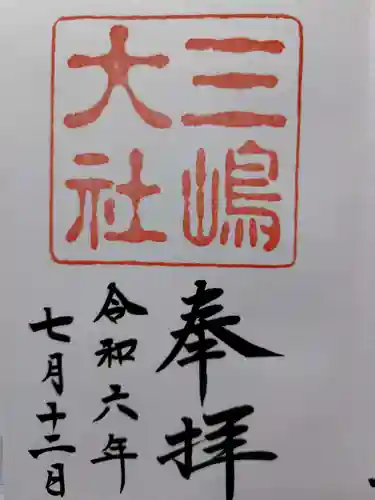 三嶋
大社
奉拝
令和六年
七月十二日